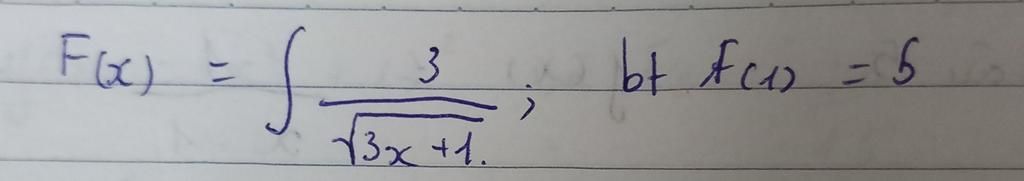 F(x) = ∫ 3/√(3x+1). ; bt F(1) = 5